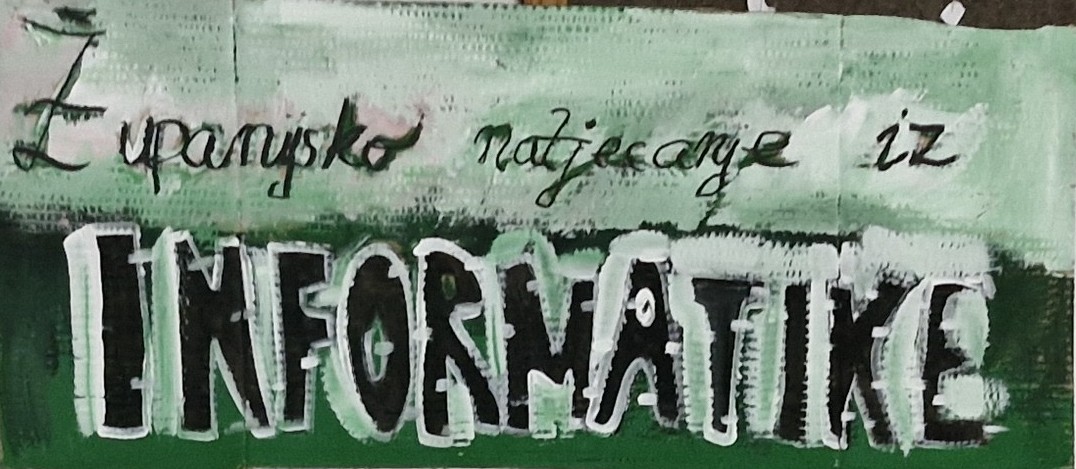 Županijsko natjecanje iz
INFORMATIKE